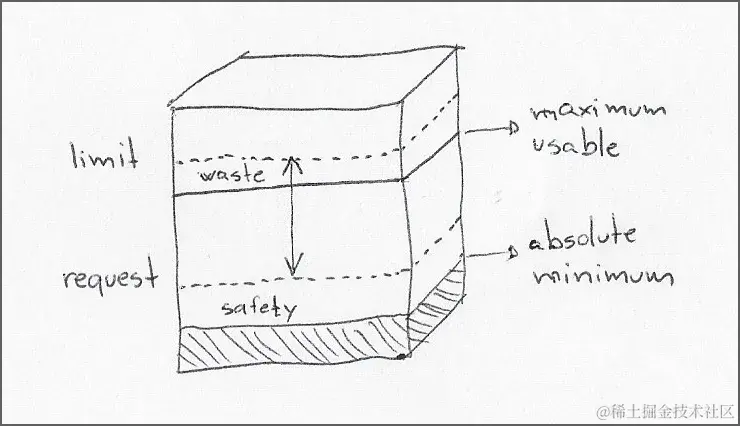 limit
waste
maximum
usable
request
safety
absolute
minimum
@稀土掘金技术社区